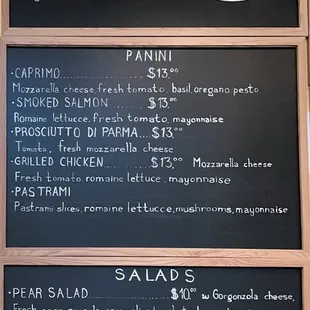 PANINI
·CAPRIMO.................. $13.00
Mozzarella cheese, fresh tomato, basil, oregano pesto
·SMOKED SALMON ........ $13.00
Romaine lettucce, fresh tomato, mayonnaise
·PROSCIUTTO DI PARMA... $13.00
Tomato, fresh mozzarella cheese
·GRILLED CHICKEN........... $13.00 Mozzarella cheese
Fresh tomato, romaine lettuce, mayonnaise
·PASTRAMI
Pastrami slices, romaine lettucce, mushrooms, mayonnaise
SALADS
·PEAR SALAD................... $10.00 w Gorgonzola cheese,